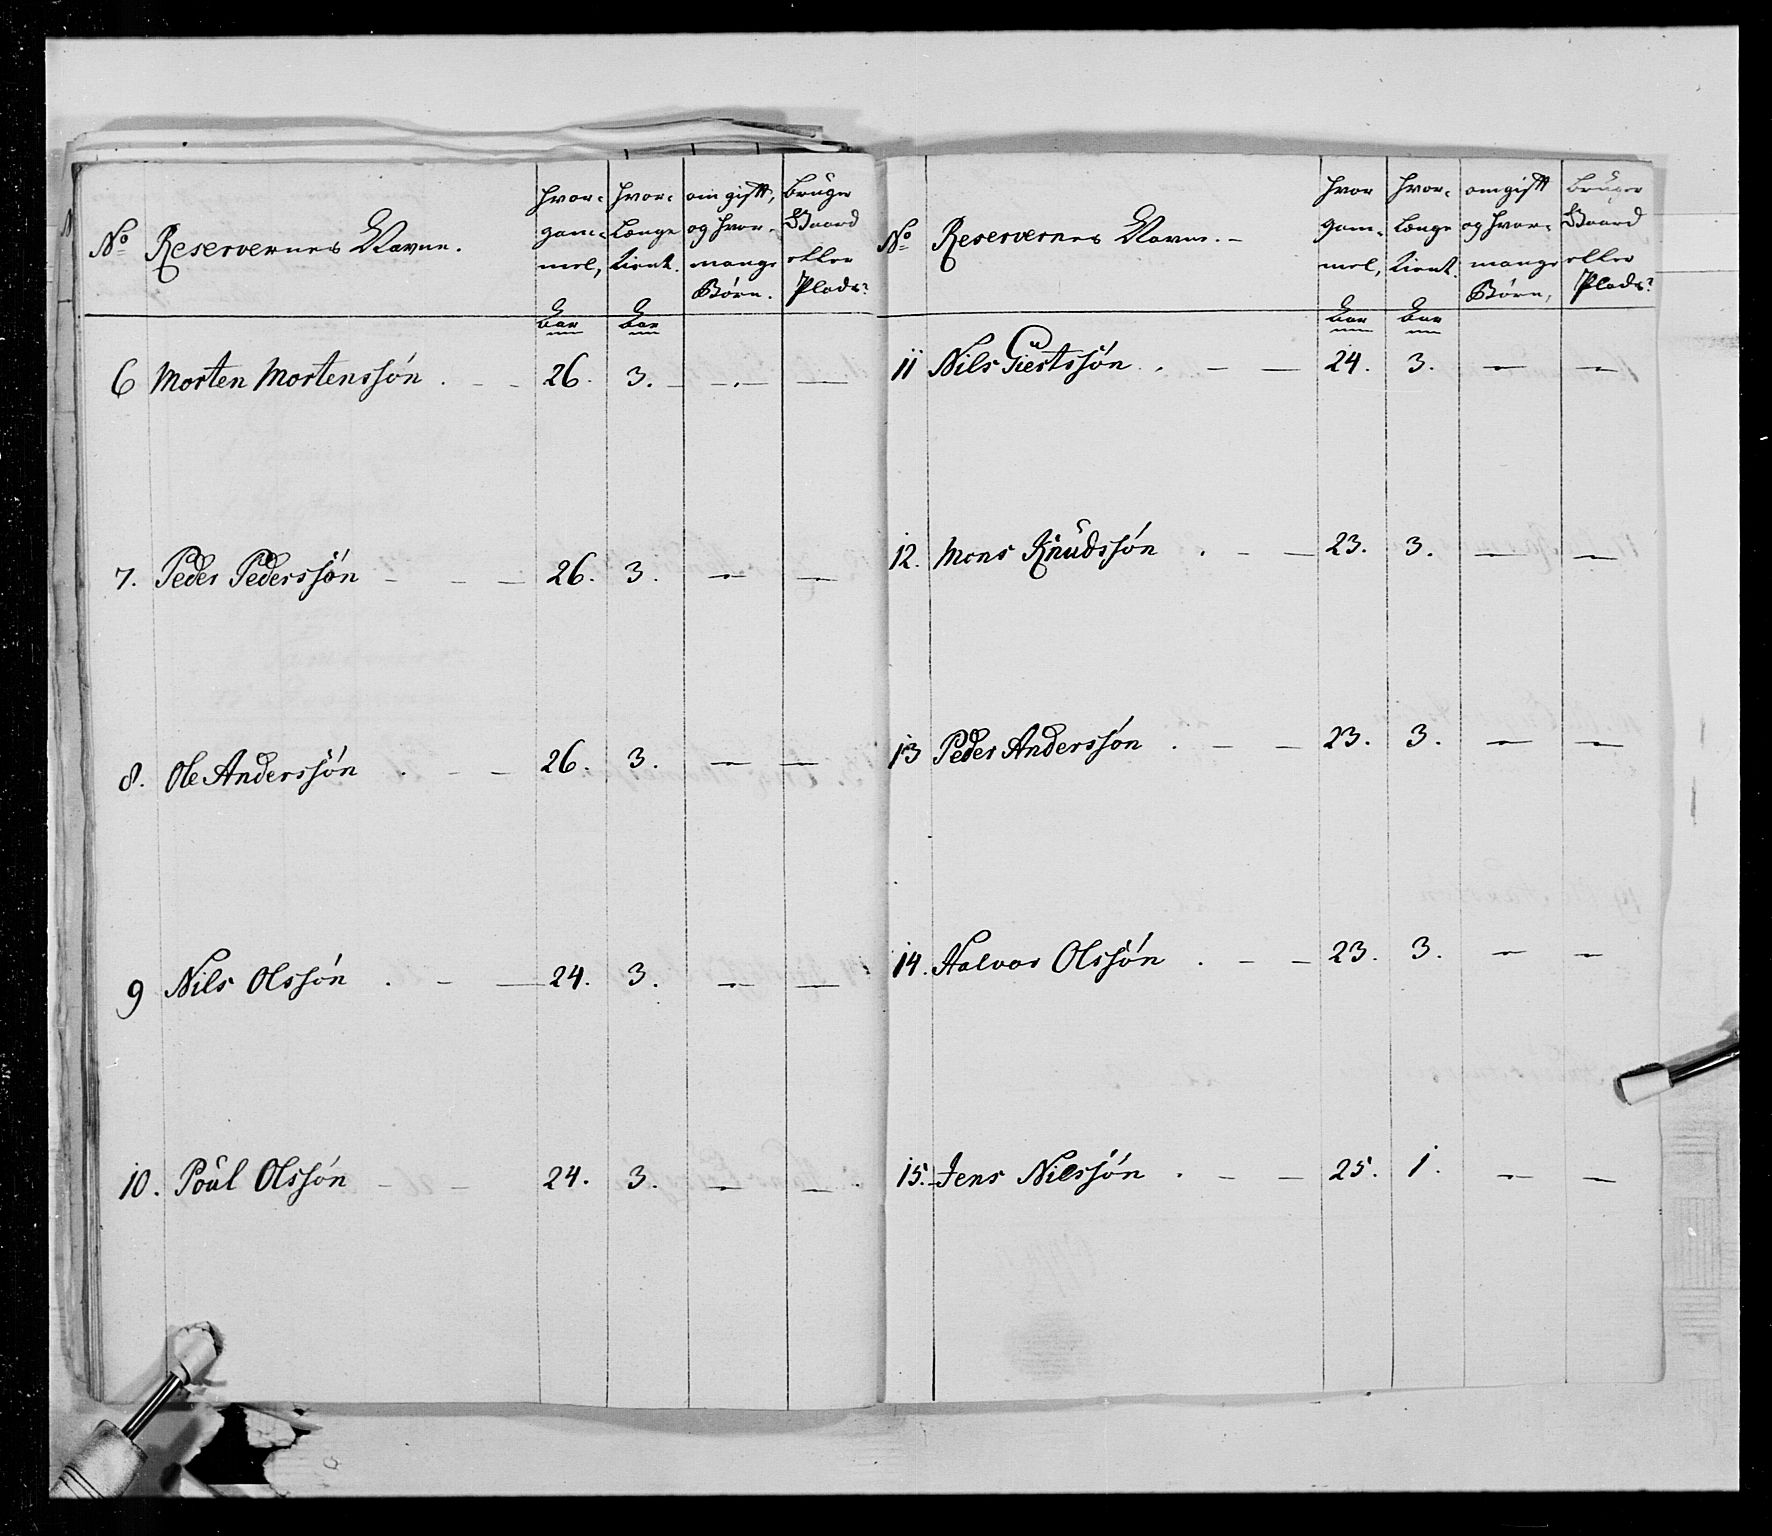 No Reservernes Navne. hvor- gam- mel, hvor- længe tient. om gift, og hvor- mange Børn. bruger Gaard eller Plads?
Aar Aar
6 Morten Mortenssøn . - - 26. 3. - -.- -
7. Peder Pederssøn - - - 26. 3. - -
8. Ole Anderssøn . - - 26. 3. - -
9 Nils Olssøn . - - 24. 3. - -
10. Poül Olssøn - - 24. 3. - -
No Reservernes Navne. - hvor gam- mel, hvor- længe tient. om gift og hvor- mange Børn, bruger Gaard eller Plads?
Aar Aar
11 Nils Giertssøn . - - 24. 3. - -
12. Mons Knüdssøn . - - 23. 3. - -
13 Peder Anderssøn . - - 23. 3. - -
14. Halvor Olssøn . - - 23. 3. - -
15. Jens Nilssøn . - - 25. 1. - -